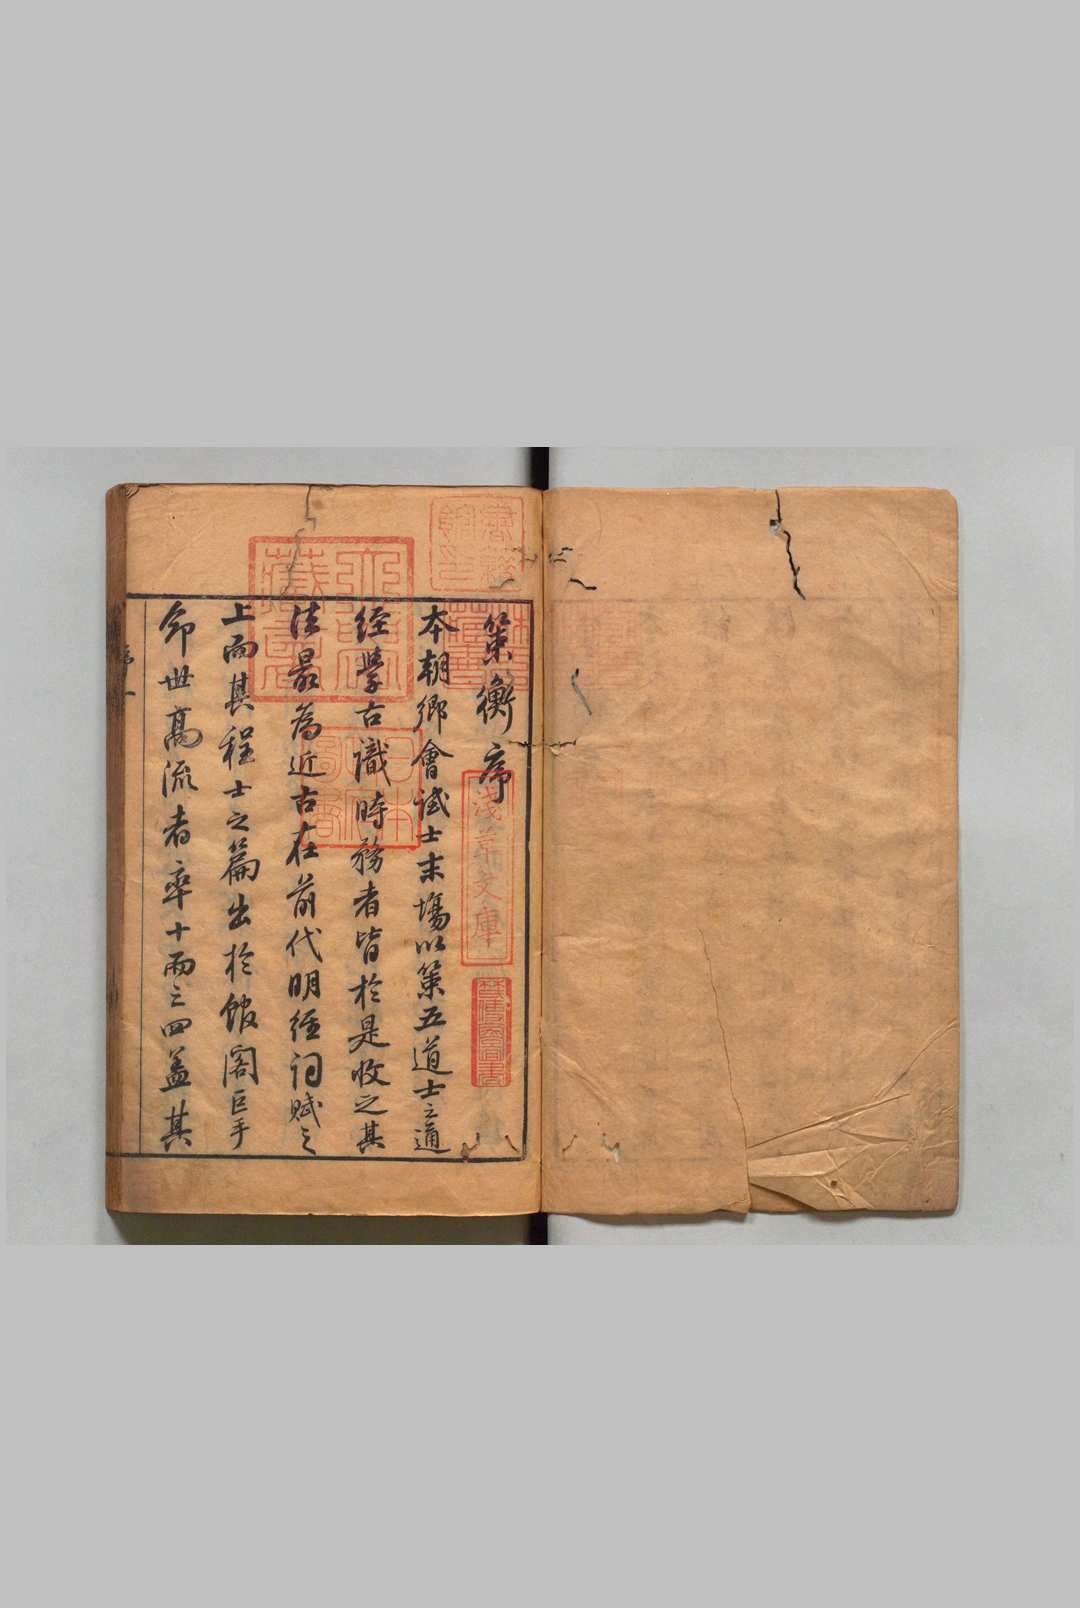 策衡序
本朝鄉會試士末場以策五道士之通
經學古識時務者皆於是收之其
法最為近古在前代明經詞賦之
上而其程士之篇出於館閣巨手
命世高流者率十而之四蓋其
序
一
淺草文庫
日本